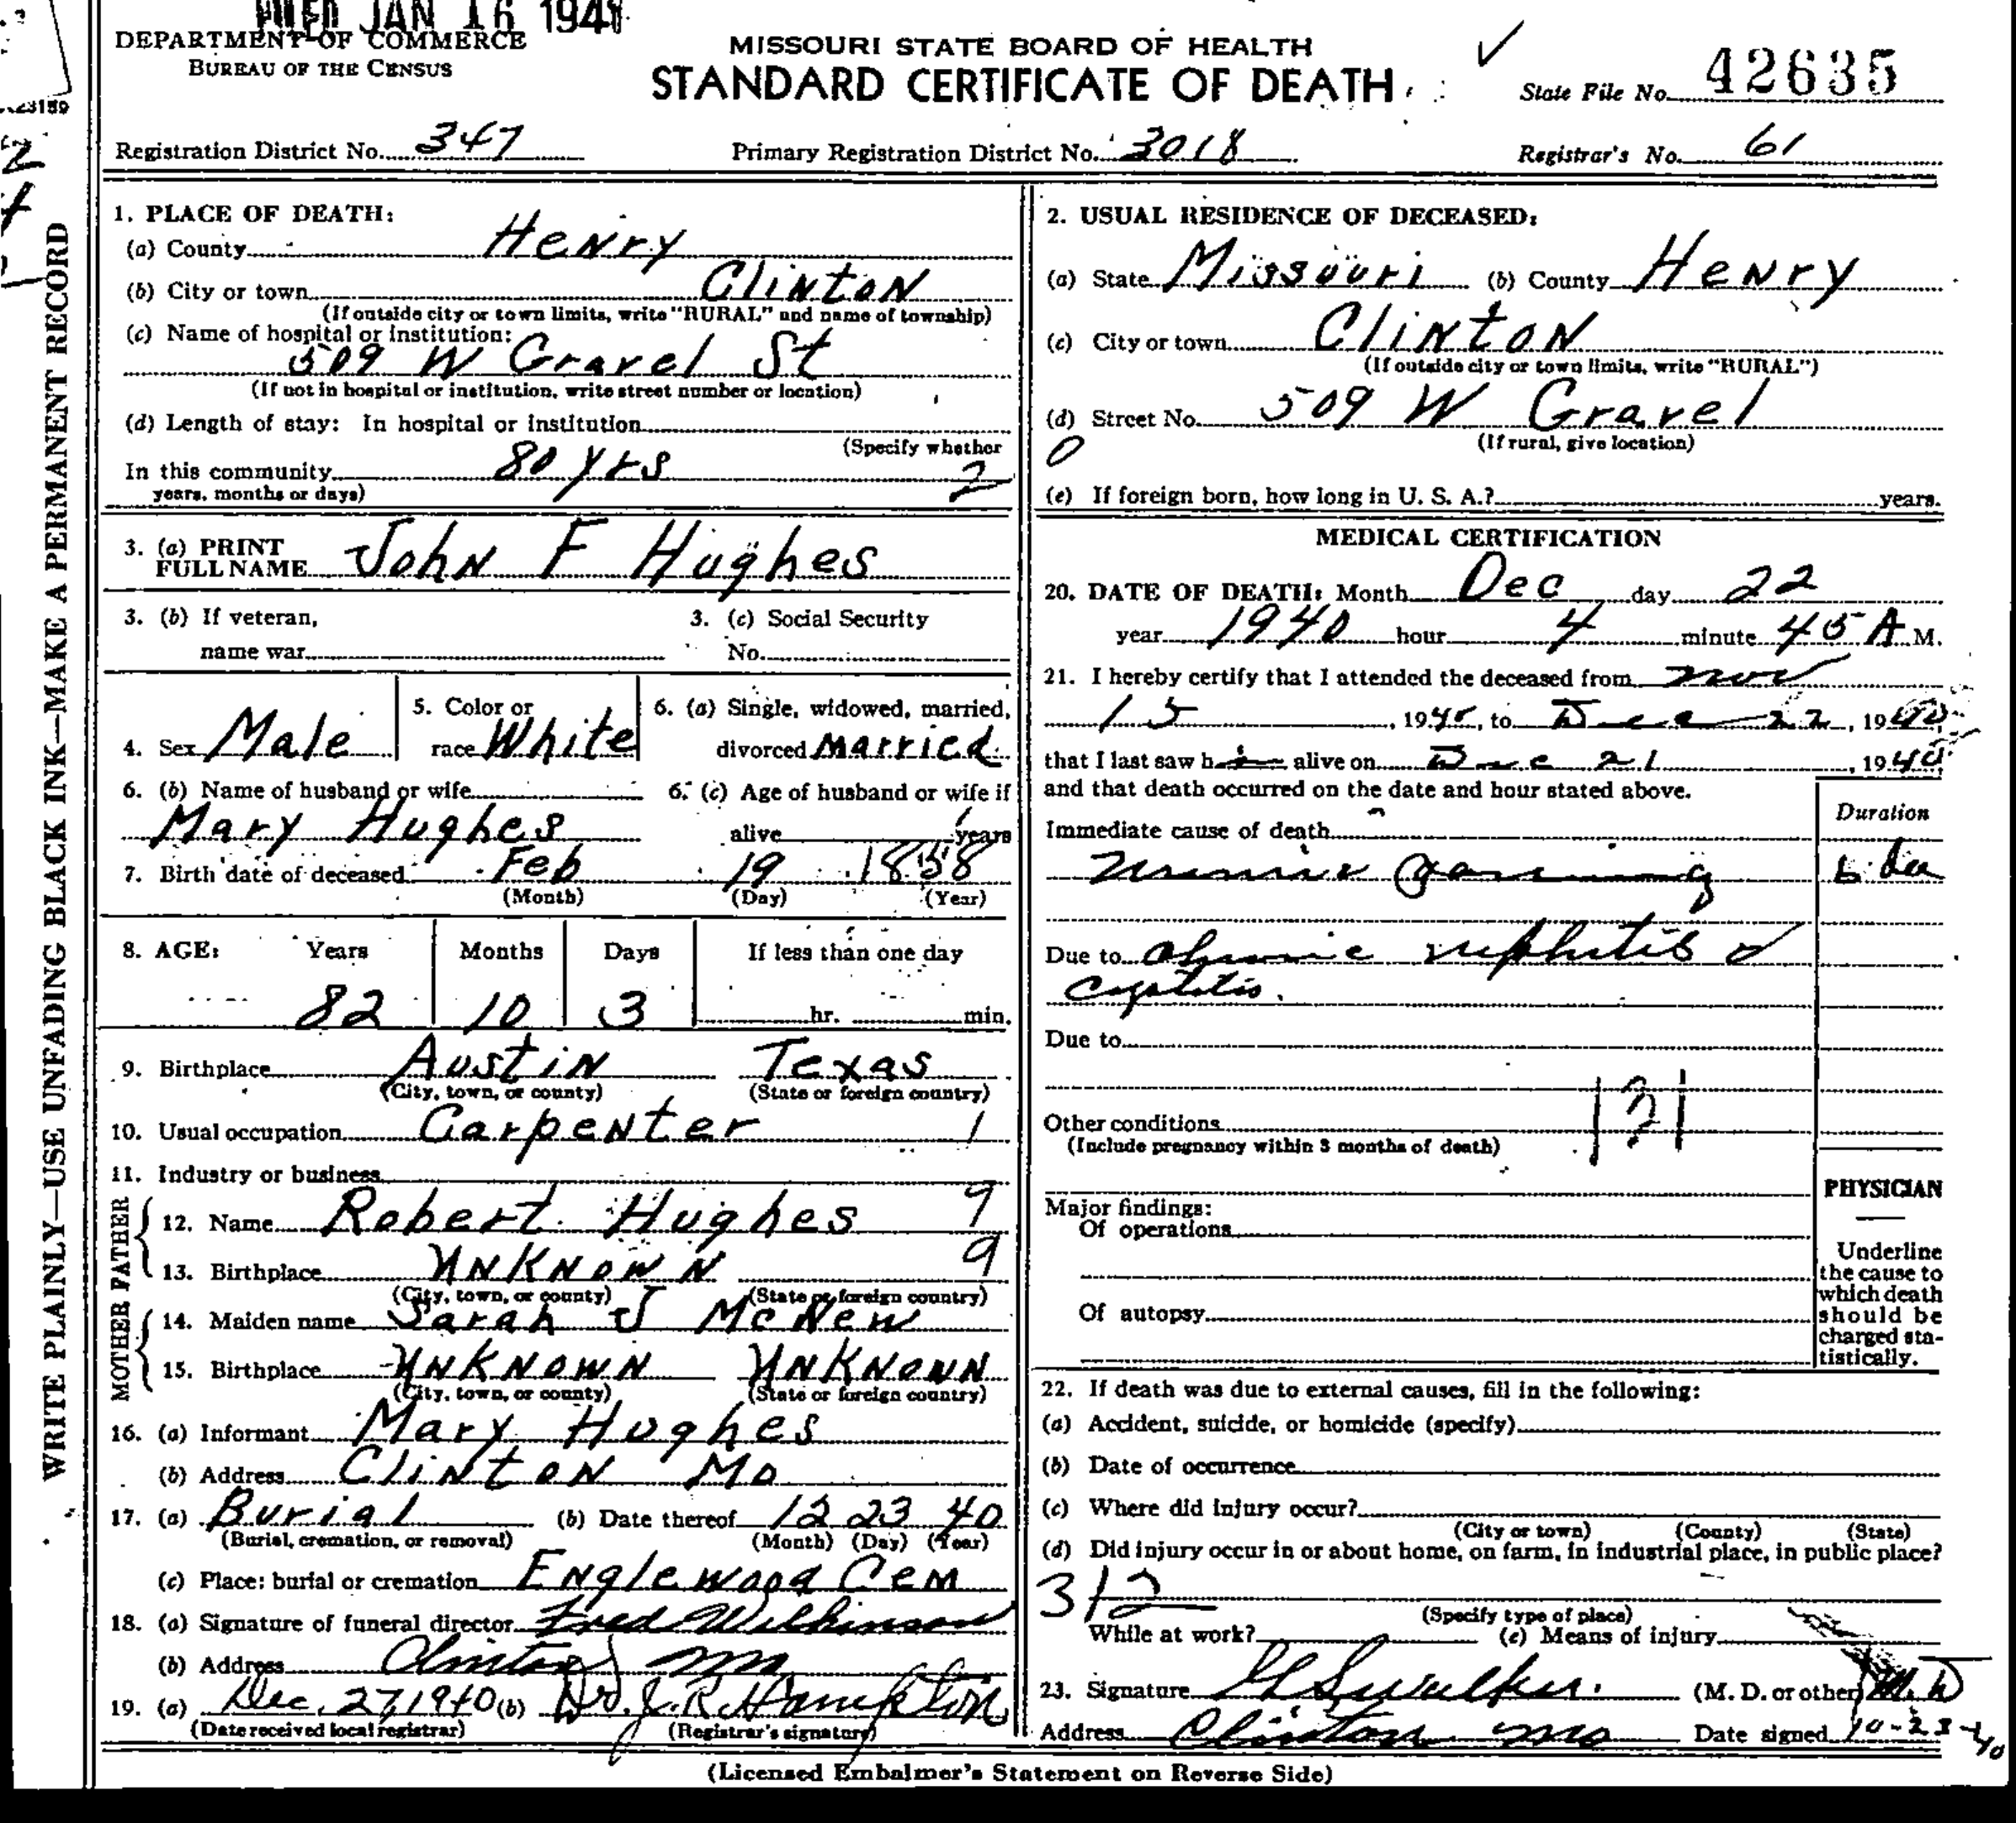 FILED JAN 16 1941
DEPARTMENT OF COMMERCE
BUREAU OF THE CENSUS
MISSOURI STATE BOARD OF HEALTH
STANDARD CERTIFICATE OF DEATH
State File No. 42635
Registration District No. 347
Primary Registration District No. 3018
Registrar's No. 61
WRITE PLAINLY—USE UNFADING BLACK INK—MAKE A PERMANENT RECORD
1. PLACE OF DEATH:
(a) County Henry
(b) City or town Clinton
(If outside city or town limits, write "RURAL" and name of township)
(c) Name of hospital or institution:
509 W Gravel St
(If not in hospital or institution, write street number or location)
(d) Length of stay: In hospital or institution
(Specify whether
In this community 80 yrs 2
years, months or days)
2. USUAL RESIDENCE OF DECEASED:
(a) State Missouri (b) County Henry
(c) City or town Clinton
(If outside city or town limits, write "RURAL")
(d) Street No. 509 W Gravel
(If rural, give location)
0
(e) If foreign born, how long in U. S. A.? years.
3. (a) PRINT
FULL NAME John F Hughes
3. (b) If veteran,
name war
3. (c) Social Security
No.
4. Sex Male
5. Color or
race White
6. (a) Single, widowed, married,
divorced Married
6. (b) Name of husband or wife
Mary Hughes
6. (c) Age of husband or wife if
alive years
7. Birth date of deceased Feb 19 1858
(Month) (Day) (Year)
8. AGE: Years Months Days If less than one day
82 10 3 hr. min.
9. Birthplace Austin Texas
(City, town, or county) (State or foreign country)
10. Usual occupation Carpenter 1
11. Industry or business
FATHER
12. Name Robert Hughes 9
13. Birthplace Unknown 9
(City, town, or county) (State or foreign country)
MOTHER
14. Maiden name Sarah J McNew
15. Birthplace Unknown Unknown
(City, town, or county) (State or foreign country)
16. (a) Informant Mary Hughes
(b) Address Clinton Mo
17. (a) Burial (b) Date thereof 12 23 40
(Burial, cremation, or removal) (Month) (Day) (Year)
(c) Place: burial or cremation Englewood Cem
18. (a) Signature of funeral director Fred Wilkinson
(b) Address Clinton Mo
19. (a) Dec. 27, 1940 (b) Dr. J. R. Hampton
(Date received local registrar) (Registrar's signature)
MEDICAL CERTIFICATION
20. DATE OF DEATH: Month Dec day 22
year 1940 hour 4 minute 45 A M.
21. I hereby certify that I attended the deceased from Nov
15, 1940, to Dec 22, 1940,
that I last saw him alive on Dec 21, 1940
and that death occurred on the date and hour stated above.
Duration
Immediate cause of death
Uremic poisoning
Due to chronic nephritis &
cystitis.
Due to
Other conditions 131
(Include pregnancy within 3 months of death)
PHYSICIAN
Major findings:
Of operations
Of autopsy
Underline
the cause to
which death
should be
charged sta-
tistically.
22. If death was due to external causes, fill in the following:
(a) Accident, suicide, or homicide (specify)
(b) Date of occurrence
(c) Where did injury occur?
(City or town) (County) (State)
(d) Did injury occur in or about home, on farm, in industrial place, in public place?
312
(Specify type of place)
While at work? (e) Means of injury
23. Signature Walker. (M. D. or other) M.D
Address Clinton Mo Date signed 10-23-40
(Licensed Embalmer's Statement on Reverse Side)